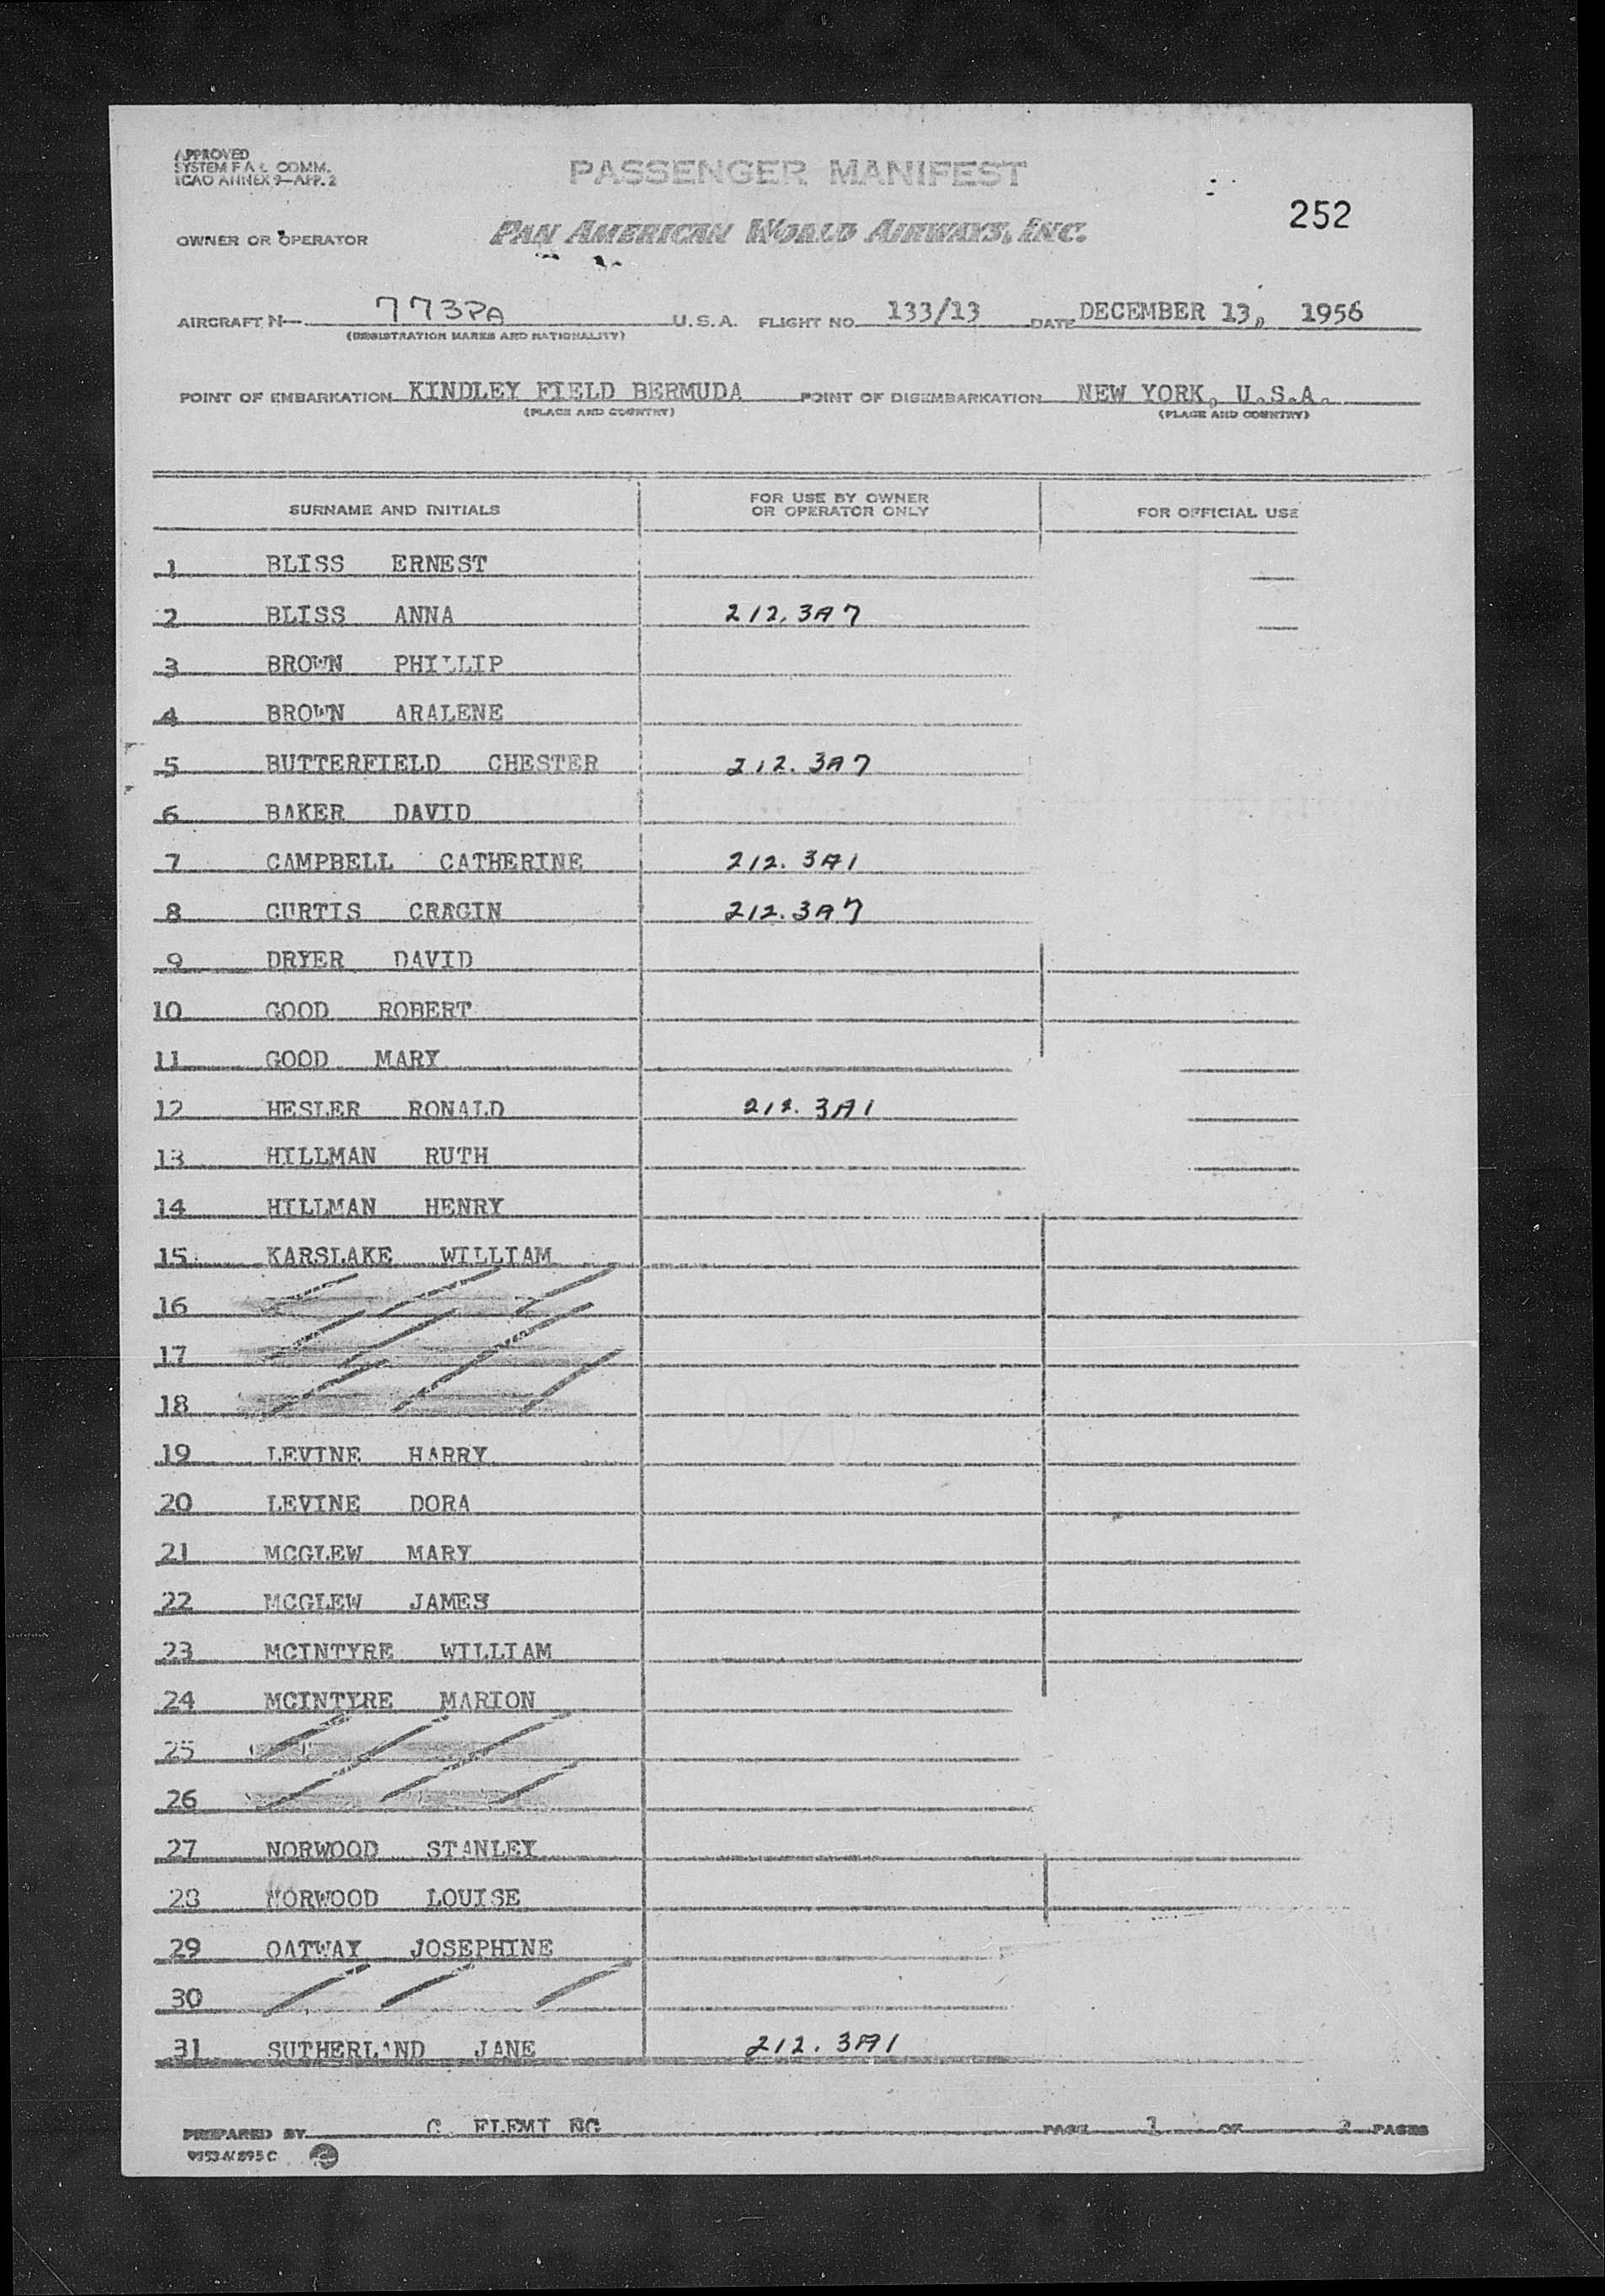 APPROVED
SYSTEM F A L COMM.
ICAO ANNEX 9—APP. 2
PASSENGER MANIFEST
252
OWNER OR OPERATOR PAN AMERICAN WORLD AIRWAYS, INC.
AIRCRAFT N— 773PA U.S.A. FLIGHT NO. 133/13 DATE DECEMBER 13, 1956
(REGISTRATION MARKS AND NATIONALITY)
POINT OF EMBARKATION KINDLEY FIELD BERMUDA POINT OF DISEMBARKATION NEW YORK, U.S.A.
(PLACE AND COUNTRY) (PLACE AND COUNTRY)
SURNAME AND INITIALS FOR USE BY OWNER OR OPERATOR ONLY FOR OFFICIAL USE
1 BLISS ERNEST
2 BLISS ANNA 212.3A7
3 BROWN PHILLIP
4 BROWN ARALENE
5 BUTTERFIELD CHESTER 212.3A7
6 BAKER DAVID
7 CAMPBELL CATHERINE 212.3A1
8 CURTIS CRAGIN 212.3A7
9 DRYER DAVID
10 GOOD ROBERT
11 GOOD MARY
12 HESLER RONALD 212.3A1
13 HILLMAN RUTH
14 HILLMAN HENRY
15 KARSLAKE WILLIAM
16
17
18
19 LEVINE HARRY
20 LEVINE DORA
21 MCGLEW MARY
22 MCGLEW JAMES
23 MCINTYRE WILLIAM
24 MCINTYRE MARION
25
26
27 NORWOOD STANLEY
28 NORWOOD LOUISE
29 OATWAY JOSEPHINE
30
31 SUTHERLAND JANE 212.3A1
PREPARED BY C. PAGE OF 2 PAGES